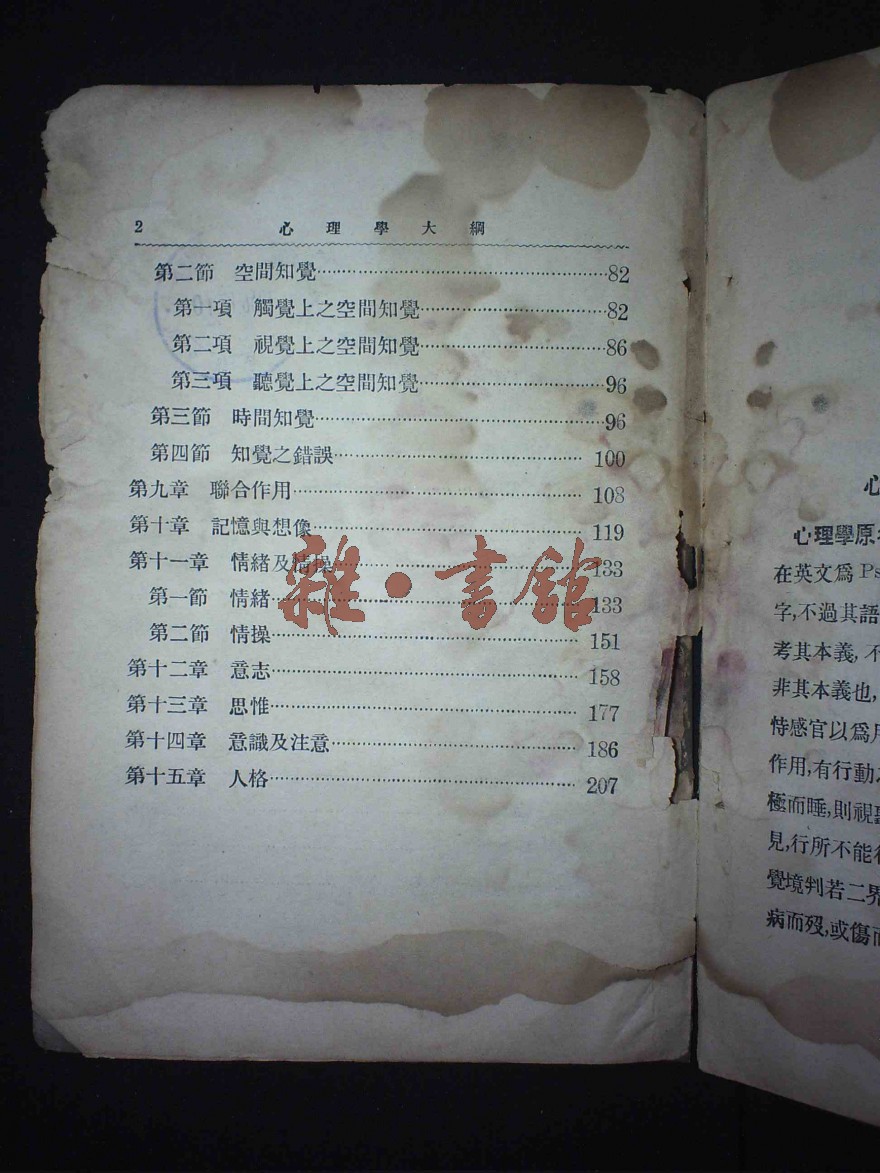 2 心理學大綱
第二節 空間知覺……82
第一項 觸覺上之空間知覺……82
第二項 視覺上之空間知覺……86
第三項 聽覺上之空間知覺……96
第三節 時間知覺……96
第四節 知覺之錯誤……100
第九章 聯合作用……108
第十章 記憶與想像……119
第十一章 情緒及情操……133
第一節 情緒……133
第二節 情操……151
第十二章 意志……158
第十三章 思惟……177
第十四章 意識及注意……186
第十五章 人格……207
雜·書館
心
心理學原
在英文爲Ps
字,不過其語
考其本義,不
非其本義也,
恃感官以爲
作用,有行動
極而睡,則視
見,行所不能
覺境判若二界
病而歿,或傷